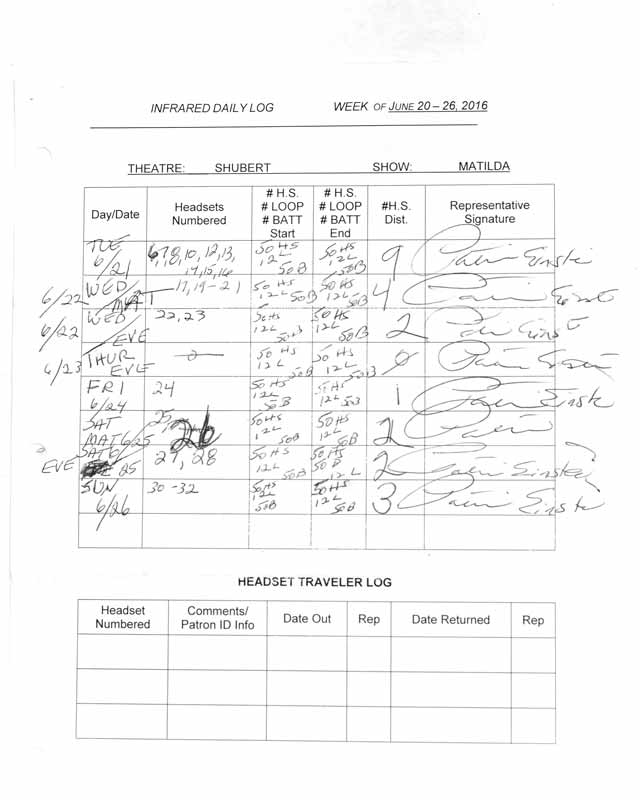 INFRARED DAILY LOG WEEK OF JUNE 20 – 26, 2016
THEATRE: SHUBERT SHOW: MATILDA
Day/Date Headsets Numbered # H.S. # LOOP # BATT Start # H.S. # LOOP # BATT End #H.S. Dist. Representative Signature
TUE 6/21 6,7,8,10,12,13, 50 HS 12L 50B 50 HS 12L 50B 9
6/22 WED MAT 17,19-21 50 HS 12L 50B 50 HS 12L 50B 4
6/22 WED EVE 22,23 50 HS 12L 50B 50 HS 12L 2
6/23 THUR EVE 50 HS 12L 50 HS 12L 50B 0
FRI 6/24 24 50 HS 12L 50B 50 HS 12L 50B 1
SAT MAT 6/25 25, 26 50 HS 12L 50B 50 HS 12L 50B 2
EVE 25 27, 28 50 HS 12L 50B 50 B 12L 2
SUN 6/26 30-32 50 HS 12L 50B 50 HS 12L 50B 3
HEADSET TRAVELER LOG
Headset Numbered Comments/ Patron ID Info Date Out Rep Date Returned Rep